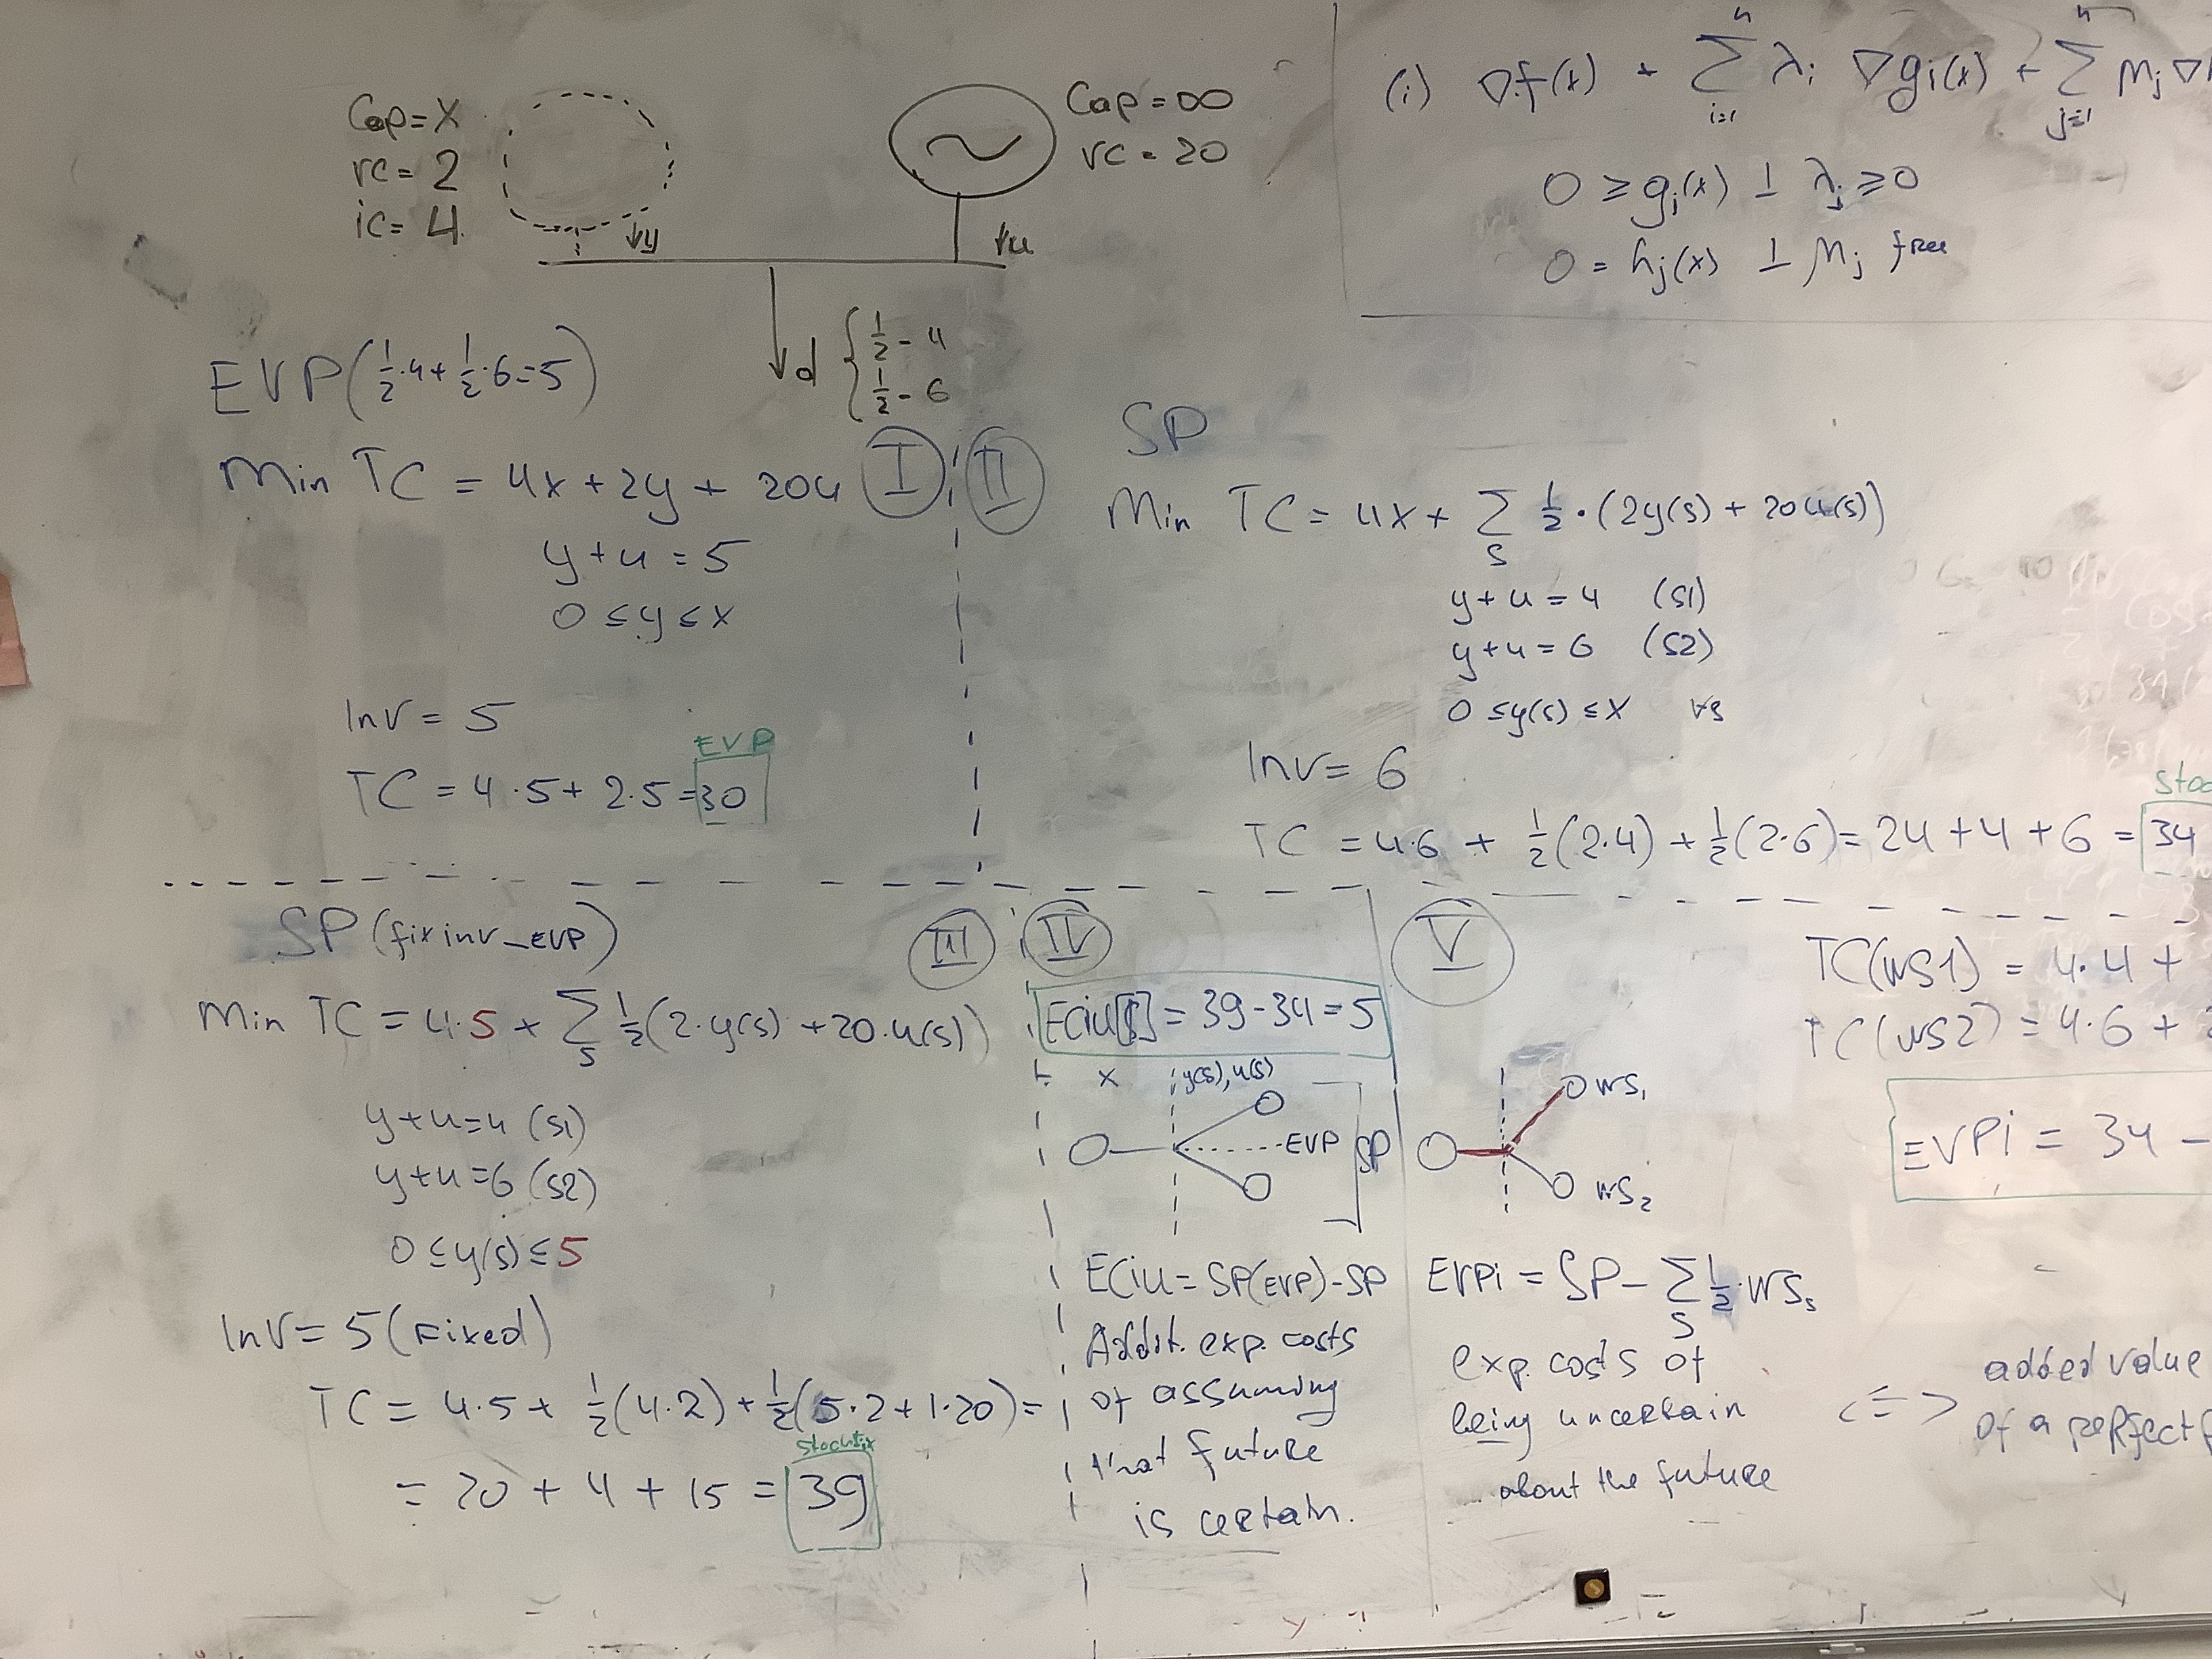 Cap=X
vc=2
ic=4
↓y
Cap=∞
vc=20
↓u
d { 1/2 - 4
1/2 - 6
(i) ∇f(x) + Σ_{i=1}^n λi ∇gi(x) + Σ_{j=1}^n Mj ∇
0 ≥ gj(x) ⊥ λj ≥ 0
0 = hj(x) ⊥ Mj free
EVP(1/2·4+1/2·6=5)
Min TC = 4x+2y+20u
I
y+u=5
0≤y≤x
Inv=5
EVP
TC=4·5+2·5=30
II
SP
Min TC=4x+Σ_s 1/2·(2y(s)+20u(s))
y+u=4 (S1)
y+u=6 (S2)
0≤y(s)≤x ∀s
Inv=6
TC=4·6+1/2(2·4)+1/2(2·6)=24+4+6=34
SP(fixinv_EVP)
III
Min TC=4·5+Σ_s 1/2(2·y(s)+20·u(s))
y+u=4 (S1)
y+u=6 (S2)
0≤y(s)≤5
Inv=5(Fixed)
TC=4·5+1/2(4·2)+1/2(5·2+1·20)=
=20+4+15=39
IV
=39-34=5
x y(s),u(s)
EVP SP
ECiu=SP(EVP)-SP
Addit. exp. costs
of assuming
that future
is certain.
V
TC(WS1)=4·4+
TC(WS2)=4·6+
WS1
WS2
EVPi=34-
EVPi=SP-Σ_s 1/2·WSs
exp. costs of
being uncertain
about the future
<=>
added value
of a perfect